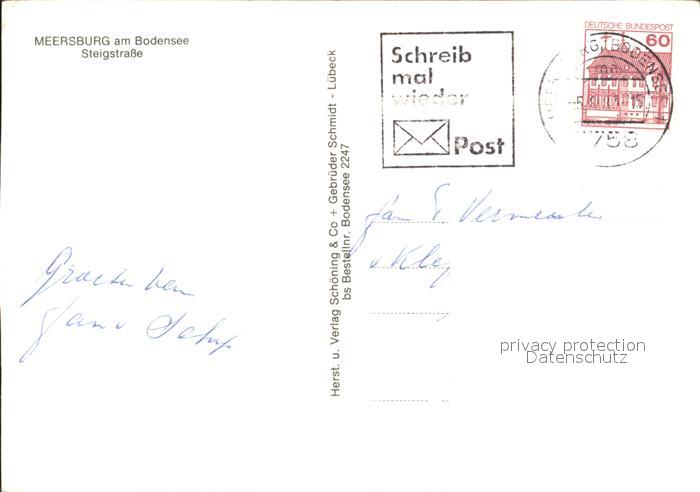 MEERSBURG am Bodensee
Steigstraße
Herst. u. Verlag Schöning & Co + Gebrüder Schmidt - Lübeck
bs Bestellnr. Bodensee 2247
Schreib
mal
wieder
Post
DEUTSCHE BUNDESPOST
60
MEERSBURG, BODENSEE
758
Jan
Groeten van
Jan
privacy protection
Datenschutz